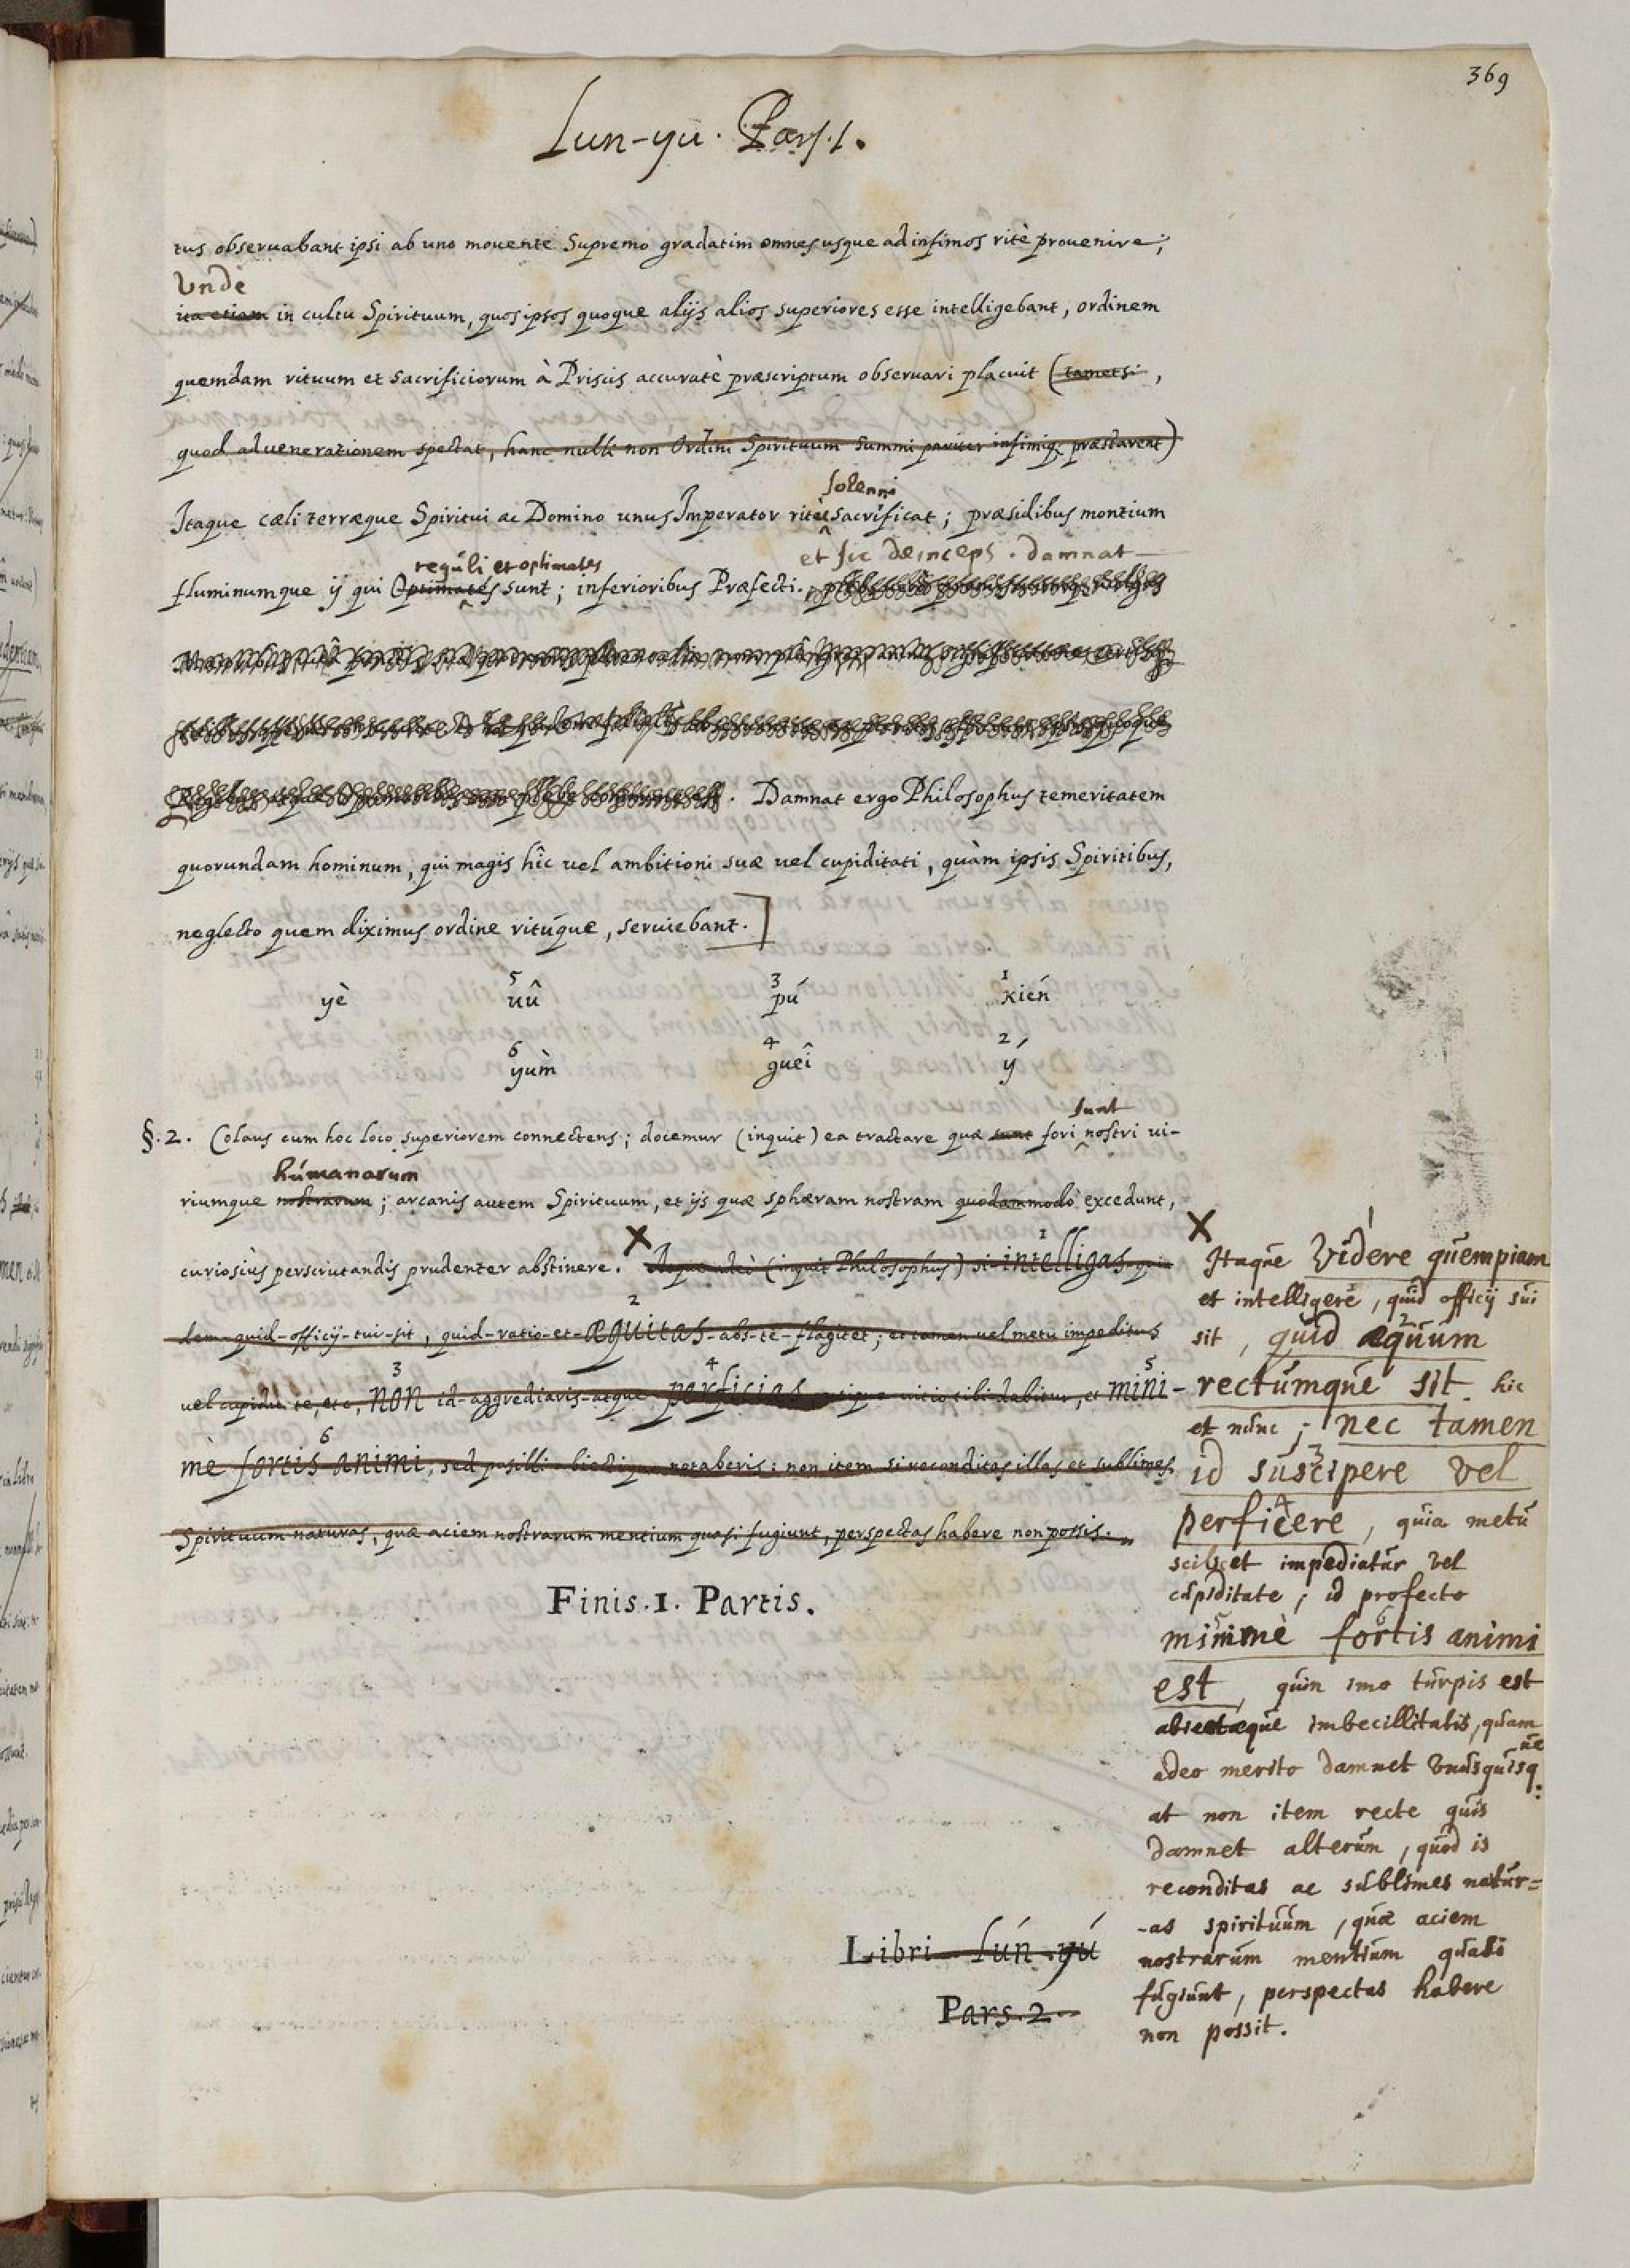 369
Lun-yu. Pars. 1.
tus obseruabant ipsi ab uno mouente Supremo gradatim omnes usque ad infimos ritè prouenire;
Vnde
ita etiam in cultu Spirituum, quos ipsos quoque alijs alios superiores esse intelligebant, ordinem
quemdam rituum et sacrificiorum à Priscis accuratè præscriptum obseruari placuit (tametsi,
quod ad uenerationem spectat, hanc nulli non Ordini Spirituum summi pariter infimiq; præstarent)
solenni
Itaque cæli terræque Spiritui ac Domino unus Imperator ritè sacrificat; præsidibus montium
reguli et optimates et sic deinceps. damnat
fluminumque ij qui Optimates sunt; inferioribus Præfecti.
. Damnat ergo Philosophus temeritatem
quorundam hominum, qui magis hîc uel ambitioni suæ uel cupiditati, quàm ipsis Spiritibus,
neglecto quem diximus ordine ritúque, seruiebant.]
5 3 1
yè uû pú kién
6 4 2
yùm guêi ý
sunt
§. 2. Colaus cum hoc loco superiorem connectens; docemur (inquit) ea tractare quæ sunt fori nostri ui-
humanarum
riumque nostrarum; arcanis autem Spirituum, et ijs quæ sphæram nostram quodammodo excedunt,
curiosiùs perscrutandis prudenter abstinere. X Atque adeò (inquit Philosophus) si 1 intelligas qui-
dem quid officij tui sit, quid ratio et 2 æquitas abs te flagitet; et tamen uel metu impeditus
uel cupidi te, etc, 3 non id aggrediaris atque 4 perficias uitio tibi dabitur, et 5 mini-
mè 6 fortis animi, sed pusilli notaberis: non item si reconditas illas et sublimes
Spirituum naturas, quæ aciem nostrarum mentium quasi fugiunt, perspectas habere non possis.
Finis. 1. Partis.
Libri Lún yú
Pars. 2.
X
Itaque Videre quempiam
et intelligere, quid officij sui
sit, quid æquum
rectumque sit hic
et nunc; nec tamen
id suscipere vel
perficere, quia metu
scilicet impediatur vel
cupiditate; id profecto
minimè fortis animi
est, quin imo turpis est
abiectæque imbecillitatis, quam
adeo merito damnet vnusquisq
ue
at non item recte quis
damnet alterum, quod is
reconditas ac sublimes natur=
-as spirituum, quæ aciem
nostrarum mentium quasi
fugiunt, perspectas habere
non possit.